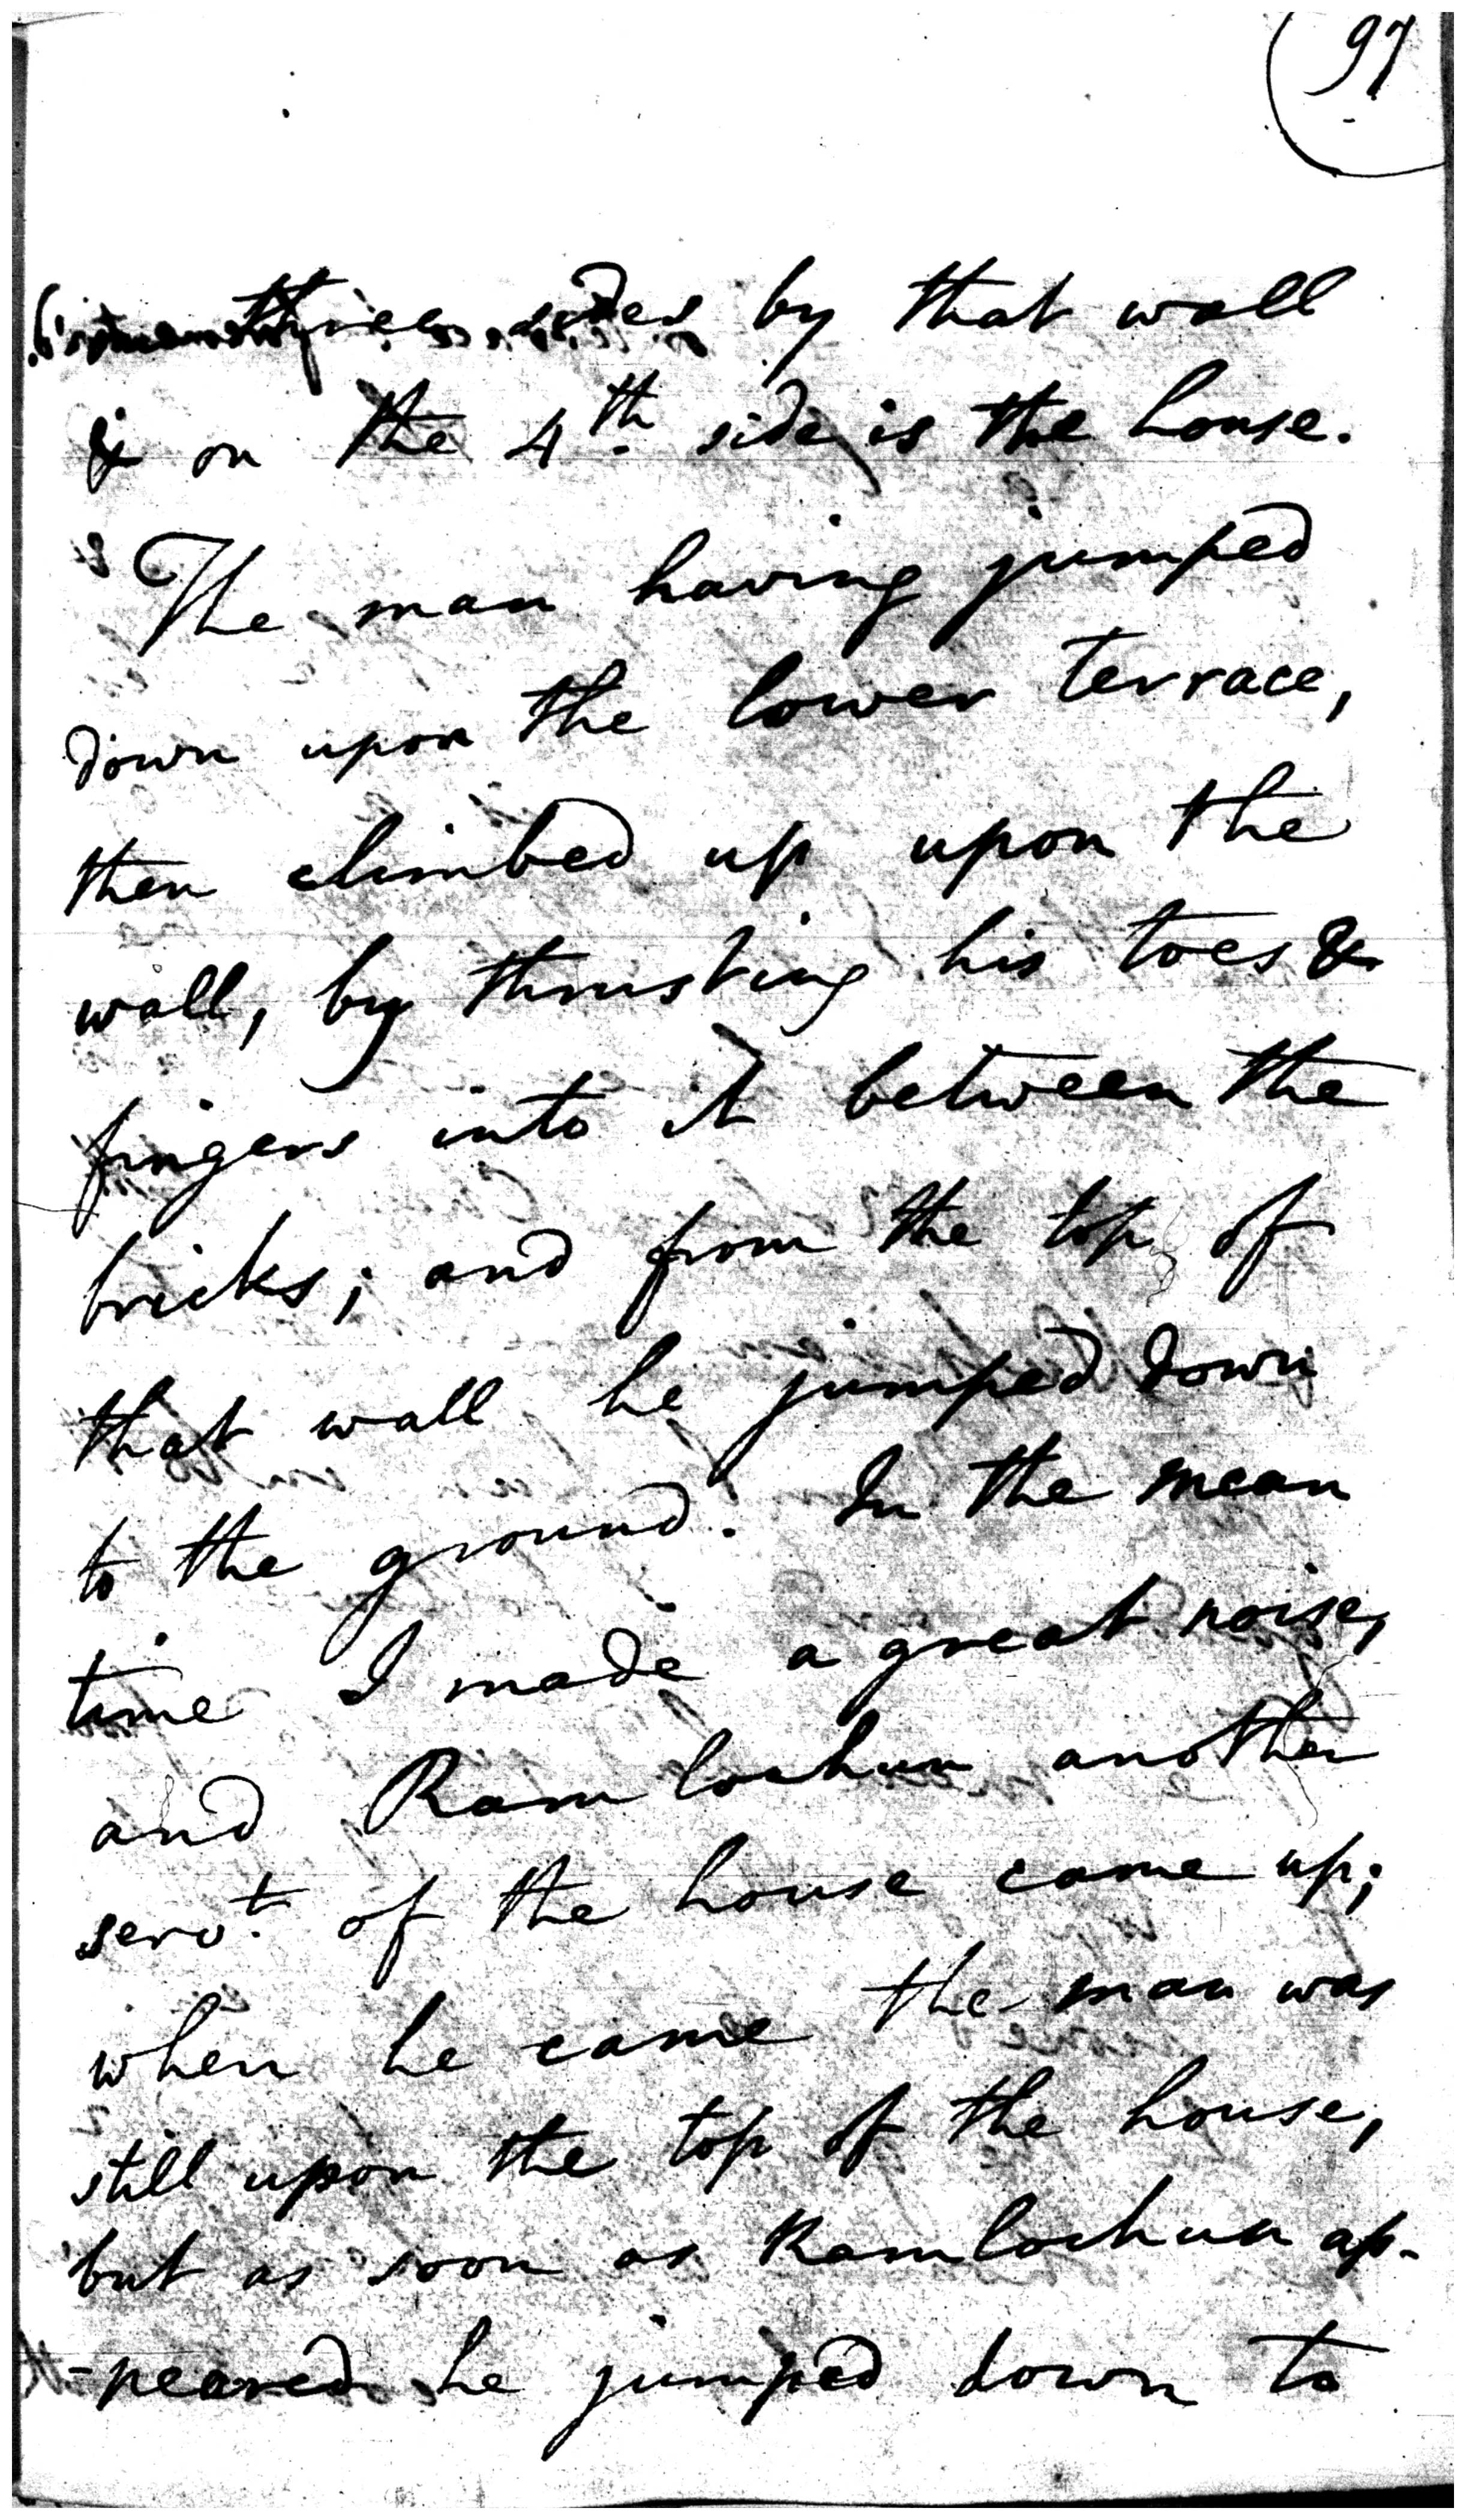 97
three sides by that wall
& on the 4th. side is the house.
The man having jumped
down upon the lower terrace,
then climbed up upon the
wall, by thrusting his toes &
fingers into it between the
bricks; and from the top of
that wall he jumped down
to the ground. In the mean
time I made a great noise,
and Ramlochun another
servt. of the house came up;
when he came the man was
still upon the top of the house,
but as soon as Ramlochun ap-
-peared he jumped down to